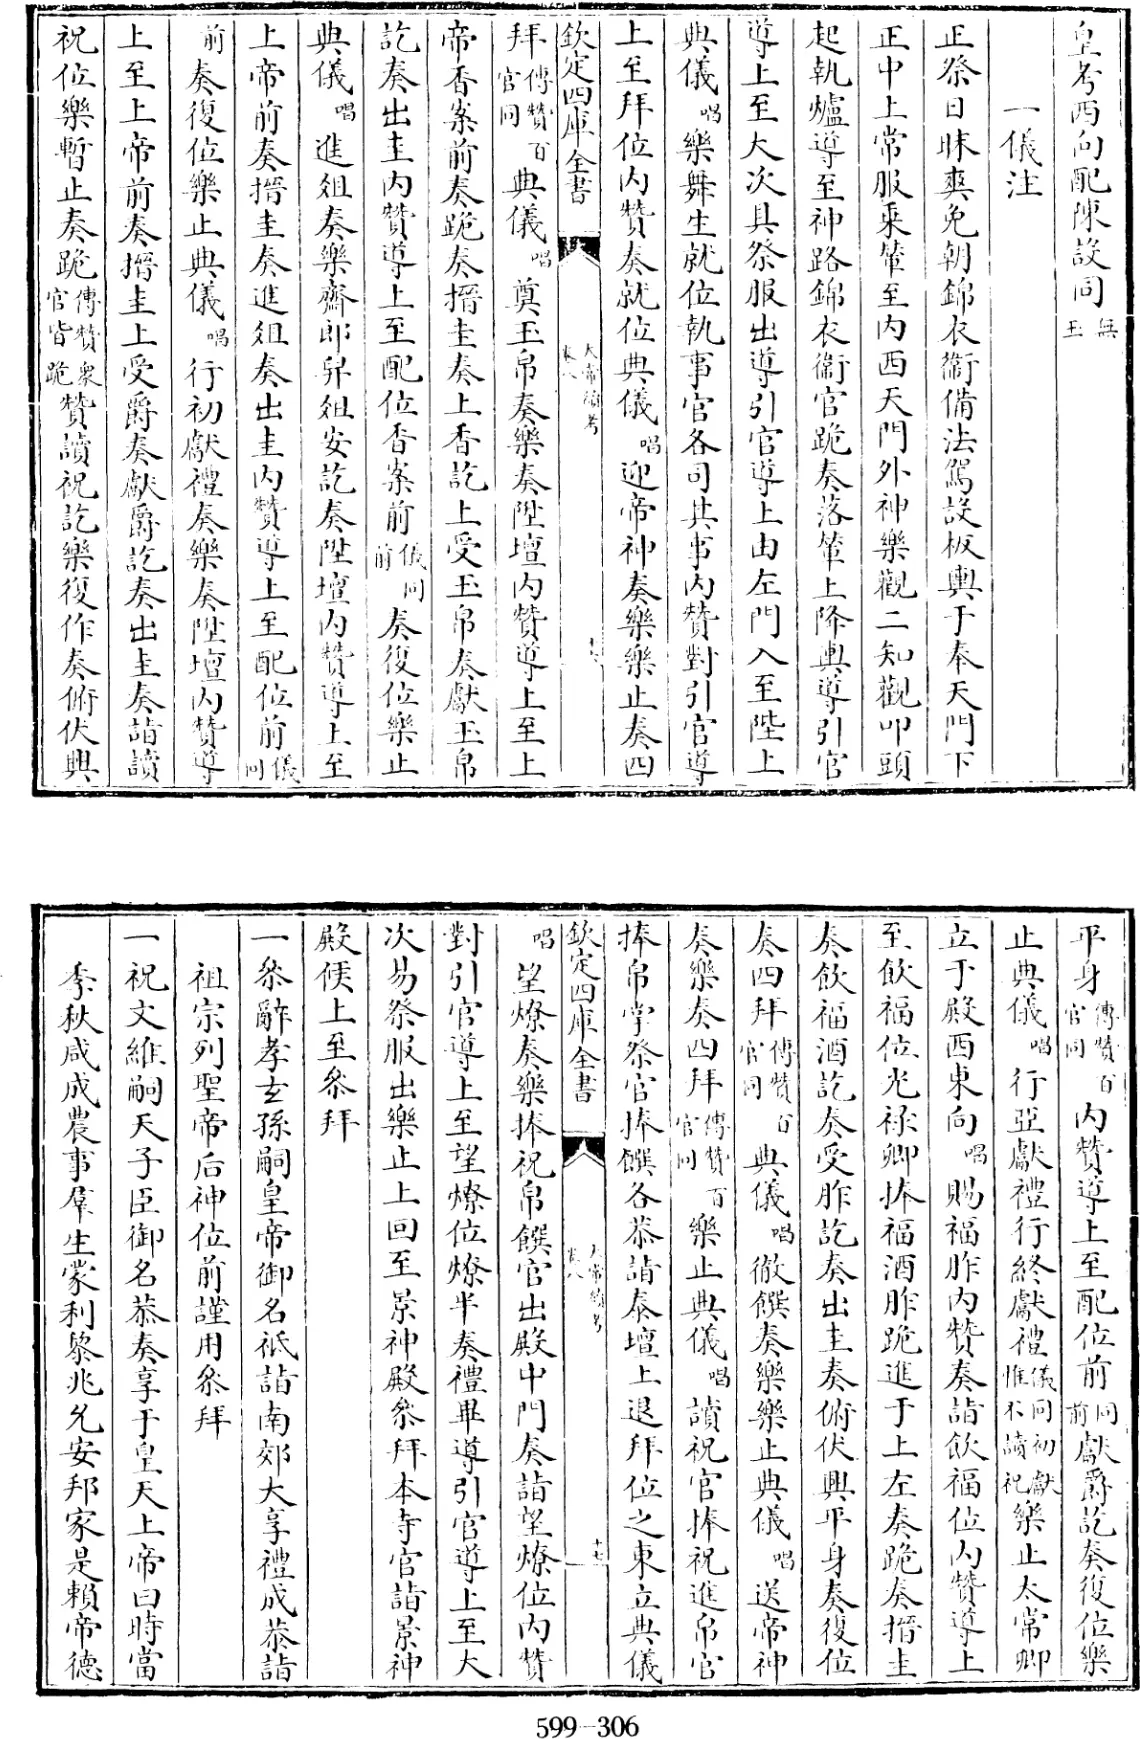 皇考西向配陳設同無玉
一儀注
正祭日昧爽免朝錦衣衛備法駕設板輿于奉天門下
正中上常服乘輦至内西天門外神樂觀二知觀叩頭
起執爐導至神路錦衣衛官跪奏落輦上降輿導引官
導上至大次具祭服出導引官導上由左門入至陛上
典儀唱樂舞生就位執事官各司其事内贊對引官導
上至拜位内贊奏就位典儀唱迎帝神奏樂樂止奏四
欽定四庫全書
太常續考
卷八
拜傳贊百官同典儀唱奠玉帛奏樂奏陞壇内贊導上至上
帝香案前奏跪奏搢圭奏上香訖上受玉帛奏獻玉帛
訖奏出圭内贊導上至配位香案前儀同前奏復位樂止
典儀唱進俎奏樂齋郎舁俎安訖奏陞壇内贊導上至
上帝前奏搢圭奏進俎奏出圭内贊導上至配位前儀同
前奏復位樂止典儀唱行初獻禮奏樂奏陞壇内贊導
上至上帝前奏搢圭上受爵奏獻爵訖奏出圭奏詣讀
祝位樂暫止奏跪傳贊衆官皆跪贊讀祝訖樂復作奏俯伏興
平身傳贊百官同内贊導上至配位前同前獻爵訖奏復位樂
止典儀唱行亞獻禮行終獻禮儀同初獻惟不讀祝樂止太常卿
立于殿西東向唱賜福胙内贊奏詣飲福位内贊導上
至飲福位光禄卿捧福酒胙跪進于上左奏跪奏搢圭
奏飲福酒訖奏受胙訖奏出圭奏俯伏興平身奏復位
奏四拜傳贊百官同典儀唱徹饌奏樂樂止典儀唱送帝神
奏樂奏四拜傳贊百官同樂止典儀唱讀祝官捧祝進帛官
捧帛掌祭官捧饌各恭詣泰壇上退拜位之東立典儀
欽定四庫全書
太常續考
卷八
十七
唱望燎奏樂捧祝帛饌官出殿中門奏詣望燎位内贊
對引官導上至望燎位燎半奏禮畢導引官導上至大
次易祭服出樂止上回至景神殿叅拜本寺官詣景神
殿候上至叅拜
一叅辭孝玄孫嗣皇帝御名祗詣南郊大享禮成恭詣
祖宗列聖帝后神位前謹用叅拜
一祝文維嗣天子臣御名恭奏享于皇天上帝曰時當
季秋咸成農事羣生蒙利黎兆允安邦家是賴帝德
599-306